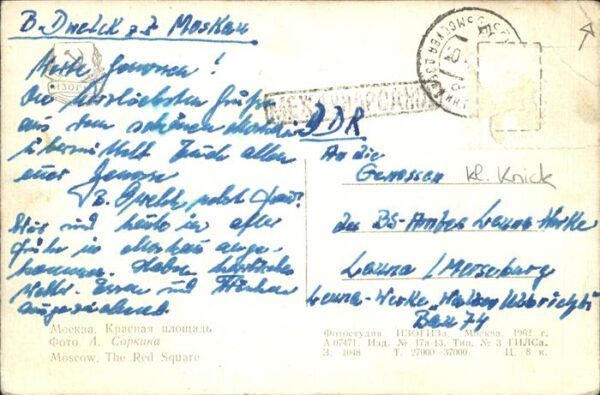 B. Dwelck z.Z. Moskau
Werte Genossen!
Die herzlichsten Grüße
aus dem schönen Moskau
übermittelt Euch allen
euer Genosse
B. Dwelck nebst
Wir sind heute in aller
Frühe in Moskau ange-
kommen. Haben herrliches
Wetter. Essen und Trinken
ausgezeichnet.
ИЗОГИЗ
МЕЖДУНАРОДНОЕ
МОСКВА
DDR
An die
Genossen
kl. Knick
der BS-Ambu Leuna Werke
Leuna / Merseburg
Leuna-Werke Walter Ulbricht
Bau 74
Москва. Красная площадь
Фото А. Соркина
Moscow. The Red Square
Фотостудия ИЗОГИЗа, Москва, 1962 г.
А 07471. Изд. № 17а-13. Тип. № 3 ГИЛСа.
З. 1048 Т. 27000-37000. Ц. 8 к.